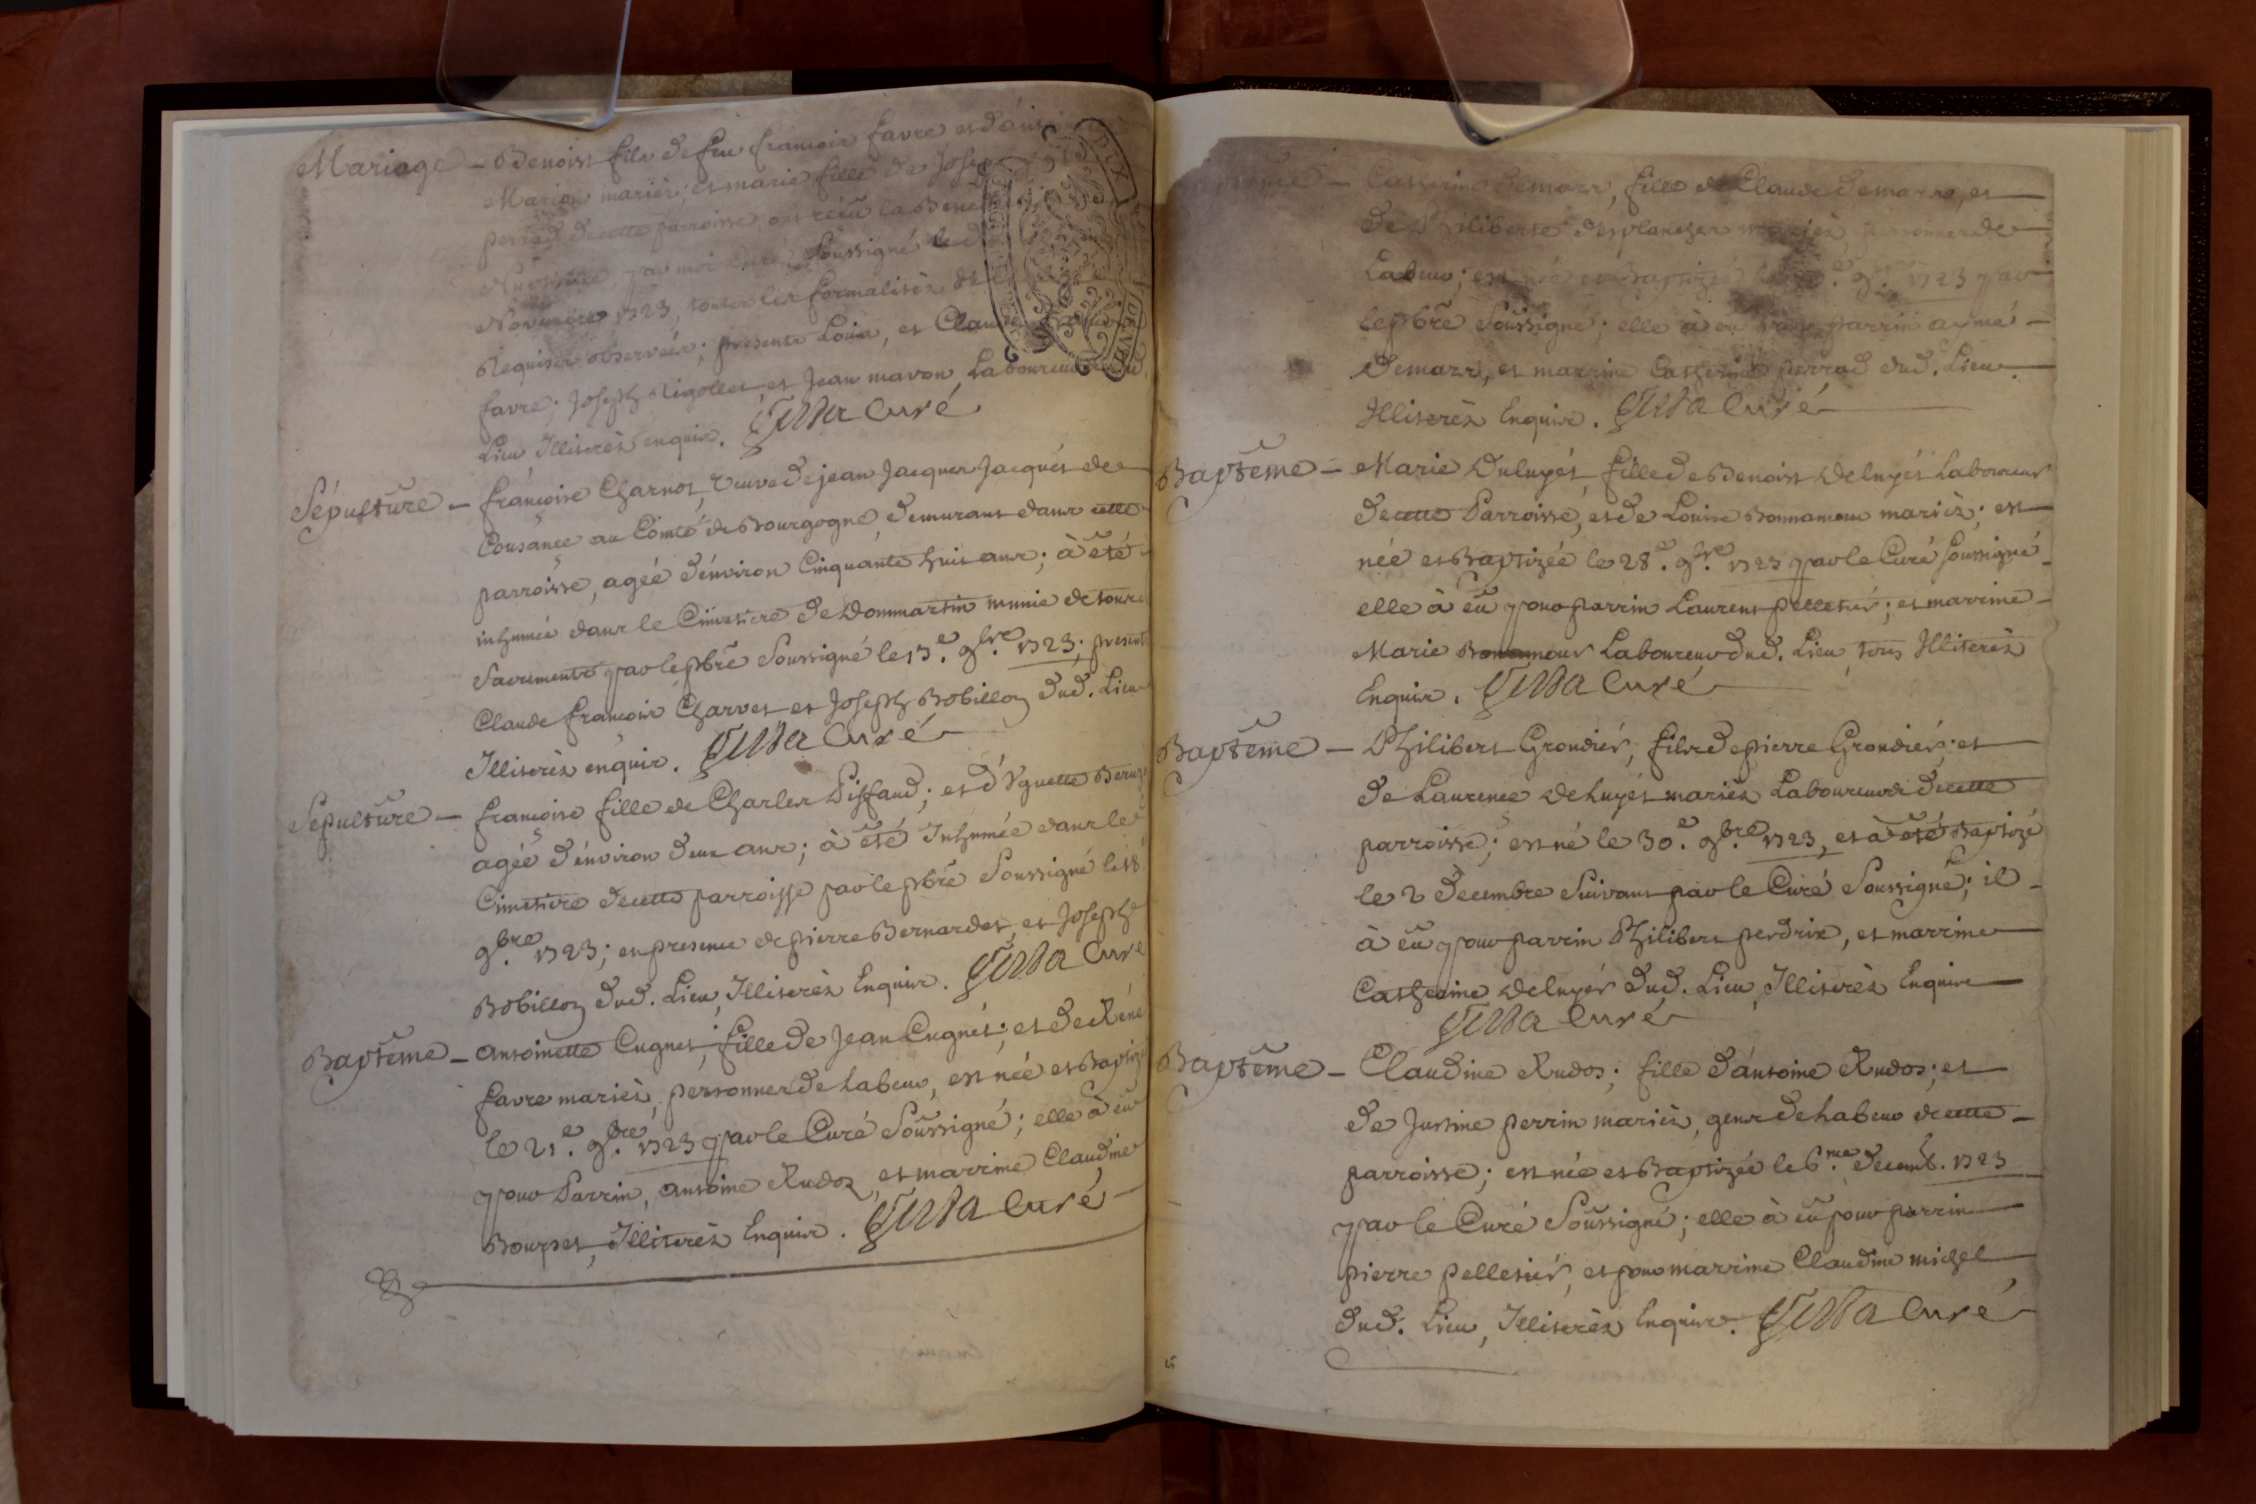 Mariage - Benoist fils de feu francois favre et d'
Marion mariés; et marie fille de Josep
perrad de cette parroisse, ont réçû la Bene
Nuptiale par moi Curé Soussigné le
Novembre 1723, toutes les formalités
Requises observées; presents Loüis, et Claude
favre; Joseph Rigollet et Jean maron, Laboureurs
Lieu Illiterés enquis. Curé
Sépulture - francoise Charnot, veuve de jean Jacques Jacqués de
Cousance au Comté de Bourgogne, demurant dans cette
parroisse, agéé d'énviron Cinquante huit ans; à été
inhumée dans le Cimetiere de Dommartin munie de tous
Sacrements par le pbrê Soussigné le 13.e 9.bre 1723; present
Claude francois Charvet et Joseph Bobillon dud. Lieu
Illiterés enquis. Curé
Sepulture - francoise fille de Charles Piffaud; et d'Uguette
agéé d'énviron deux ans; à été Inhumée dans le
Cimetiere de cette parroisse par le pbrê Soussigné le 18
9.bre 1723; en presence de pierre Bernardet, et Joseph
Bobillon dud. Lieu, Illiterés Enquis. Curé
Baptême - Antoinette Cugnet, fille de Jean Cugnét; et de Réné
favre mariés, personnes de Labeur, est née et Baptizé
le 21.e 9.bre 1723 par le Curé Soussigné; elle à eû
pour Parrin, Antoine Rudoz, et marrine Claudine
Bourset, Illiterés Enquis. Curé
Catherine Demarr, fille de Claude Demarr, et
de Philiberte Desplanches mariés, personnes de
Labeur; est née et Baptizée 9.bre 1723 par
le pbrê Soussigné; elle à eu pour parrin aymé
Demarr, et marrine Catherine perrad dud. Lieu
Illiterés Enquis. Curé
Baptême - Marie Duluyét, fille de Benoist Deluyét Laboureur
de cette Parroisse, et de Louise Bonnamour mariés; est
née et Baptizée le 28.e 9.bre 1723 par le Curé Soussigné
elle à eû pour parrin Laurent pelletiér; et marrine
Marie Bonnamour Laboureurs dud. Lieu, tous Illiterés
Enquis. Curé
Baptême - Philibert Grondiér, fils de pierre Grondiér; et
de Laurence Deluyét mariés Laboureurs de cette
parroisse; est né le 30.e 9.bre 1723, et à été Baptizé
le 2 decembre Suivant par le Curé Soussigné; il
à eû pour parrin Philibert perdrix, et marrine
Catherine Deluyét dud. Lieu, Illiterés Enquis
Curé
Baptême - Claudine Rudoz; fille d'ántoine Rudoz; et
de Justine perrin mariés, gens de Labeur de cette
parroisse; est née et Baptizée le 6.me decemb. 1723
par le Curé Soussigné; elle à eû pour parrin
pierre pelletiér, et pour marrine Claudine michel
dud. Lieu, Illiterés Enquis. Curé